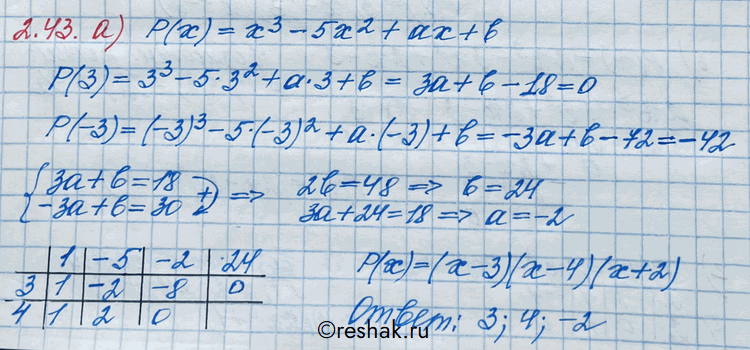 2.43. а) P(x) = x³ − 5x² + ax + b
P(3) = 3³ − 5·3² + a·3 + b = 3a + b − 18 = 0
P(−3) = (−3)³ − 5·(−3)² + a·(−3) + b = −3a + b − 72 = −42
{ 3a + b = 18
−3a + b = 30 +) => 2b = 48 => b = 24
3a + 24 = 18 => a = −2
1 | −5 | −2 | 24
3 | 1 | −2 | −8 | 0
4 | 1 | 2 | 0
P(x) = (x−3)(x−4)(x+2)
Ответ: 3; 4; −2
©reshak.ru